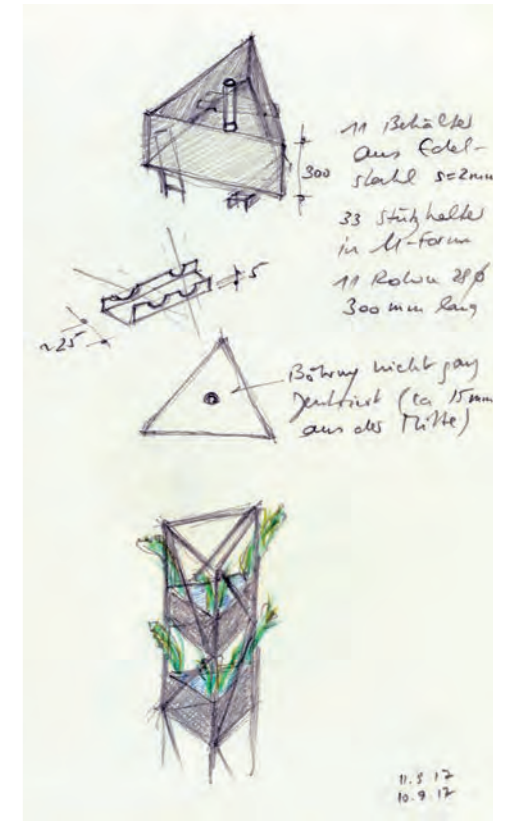 11 Behälter
aus Edel-
stahl s=2mm
300
33 Stützhalter
in U-Form
11 Rohre 28ø
300 mm lang
5
~25
Bohrung nicht ganz
zentriert (ca 15mm
aus der Mitte)
11.9 17
10.9.17